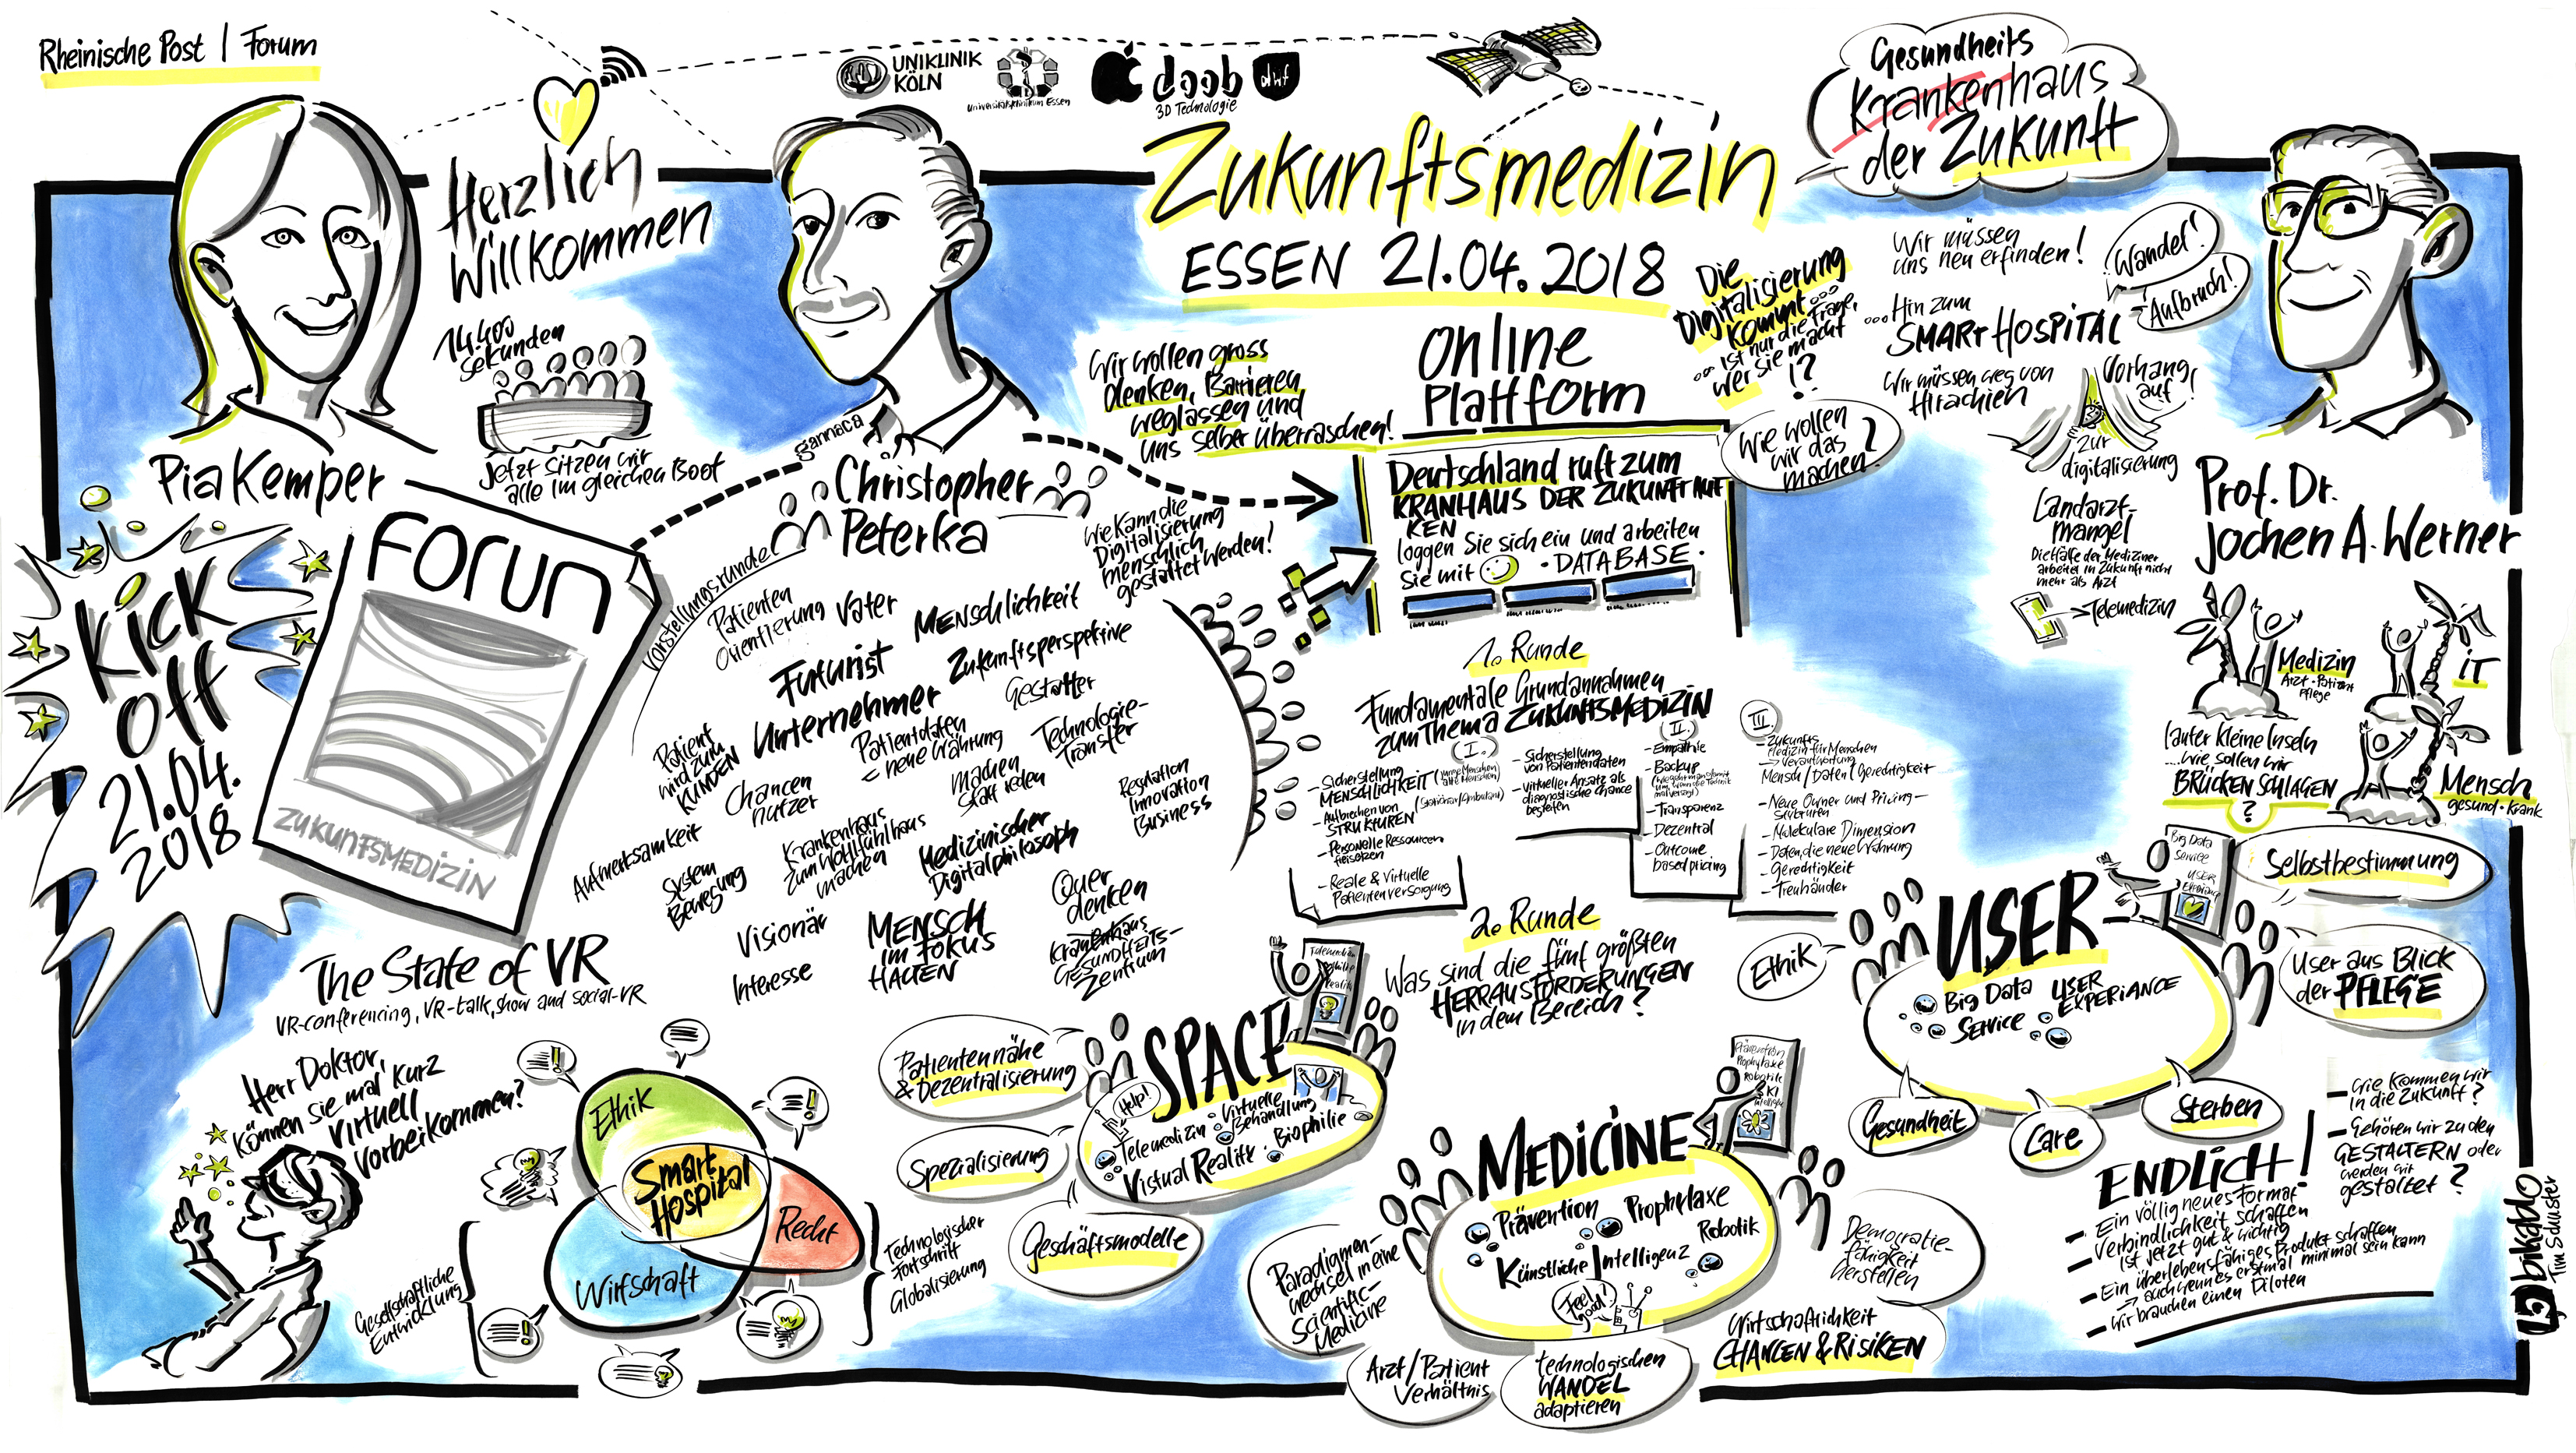 Rheinische Post | Forum
Herzlich
Willkommen
14.400
Sekunden
Jetzt sitzen wir
alle im gleichen Boot
Pia Kemper
UNIKLINIK
KÖLN
Universitätsklinikum Essen
doob
3D Technologie
dwf
Zukunftsmedizin
ESSEN 21.04.2018
Gesundheits
Krankenhaus
der Zukunft
Kick
off
21.04.
2018
Forum
ZUKUNFTSMEDIZIN
gannaca
Christopher
Peterka
Wir wollen gross
denken, Barrieren
weglassen und
uns selber überraschen!
Wie kann die
Digitalisierung
menschlich
gestaltet werden!
Vorstellungsrunde
Patienten
Orientierung
Vater
Menschlichkeit
Futurist
Zukunftsperspektive
Unternehmer
Gestalter
Patient
wird zum
KUNDEN
Patientdaten
= neue Währung
Technologie-
Transfer
Chancen
nutzer
machen
statt reden
Regulation
Innovation
Business
Aufmerksamkeit
System
Bewegung
Krankenhaus
zum Wohlfühlhaus
machen
Medizinischer
Digitalphilosoph
Quer
denken
Visionär
MENSCH
IM FOKUS
HALTEN
Krankenhaus
GESUNDHEITS-
Zentrum
Interesse
Online
Plattform
Deutschland ruft zum
KRANHAUS DER ZUKUNFT AUF
KEN
loggen Sie sich ein und arbeiten
Sie mit
• DATABASE •
Die
Digitalisierung
kommt...
... ist nur die Frage,
wer sie macht
!?
Wie wollen
wir das
machen?
Wir müssen
uns neu erfinden!
Wandel!
Aufbruch!
...Hin zum
SMART HOSPITAL
Wir müssen weg von
Hirachien
Vorhang
auf!
zur
digitalisierung
Landarzt-
mangel
Die Hälfte der Mediziner
arbeitet in Zukunft nicht
mehr als Arzt
Telemedizin
Prof. Dr.
Jochen A. Werner
Medizin
Arzt • Patient
Pflege
iT
lauter kleine Inseln
...wie sollen wir
BRÜCKEN SCHLAGEN
?
Mensch
gesund • krank
1. Runde
Fundamentale Grundannahmen
zum Thema ZUKUNFTSMEDIZIN
I.
- Sicherstellung
MENSCHLICHKEIT
(Stationär/Ambulant)
- Aufbrechen von
STRUKTUREN
- Personelle Ressourcen
freisetzen
- Reale & Virtuelle
Patientenversorgung
- Sicherstellung
von Patientendaten
- virtueller Ansatz als
diagnostische Chance
begreifen
II.
- Empathie
- Backup
- Transparenz
- Dezentral
- Outcome
based pricing
III.
- Zukunfts
Medizin für Menschen
→ Verantwortung
Mensch / Daten / Gerechtigkeit
- Neue Owner und Pricing-
Strukturen
- Molekulare Dimension
- Daten, die neue Währung
- Gerechtigkeit
- Treuhänder
2. Runde
Was sind die fünf größten
HERRAUSFORDERUNGEN
in dem Bereich?
The State of VR
VR-conferencing, VR-talk, show and social-VR
Herr Doktor,
können sie mal kurz
virtuell
vorbeikommen?
Ethik
Smart
Hospital
Recht
Wirtschaft
Gesellschaftliche
Entwicklung
Technologischer
Fortschritt
Globalisierung
Patientennähe
& Dezentralisierung
Spezialisierung
Geschäftsmodelle
SPACE
Help!
Virtuelle
Behandlung
Telemedizin
Biophilie
Virtual Reality
MEDICINE
Prävention
Prophylaxe
Robotik
KI
Prävention
Prophylaxe
Robotik
Künstliche Intelligenz
Feel
good!
Paradigmen-
wechsel in eine
Scientific-
Medicine
Arzt/Patient
Verhältnis
technologischen
WANDEL
adaptieren
Wirtschaftlichkeit
CHANCEN & RISIKEN
Democratie-
fähigkeit
herstellen
Ethik
USER
Big Data
Service
USER
Experiance
Big Data
Service
USER
EXPERIANCE
Selbstbestimmung
User aus Blick
der PFLEGE
Gesundheit
Care
Sterben
- Wie kommen wir
in die Zukunft?
- Gehören wir zu den
GESTALTERN oder
werden wir
gestaltet?
ENDLICH!
- Ein völlig neues Format
- Verbindlichkeit schaffen
ist jetzt gut & wichtig
- Ein überlebensfähiges Produkt schaffen
→ auch wenn es erstmal minimal sein kann
- wir brauchen einen Piloten
bikablo
Tim Schuster